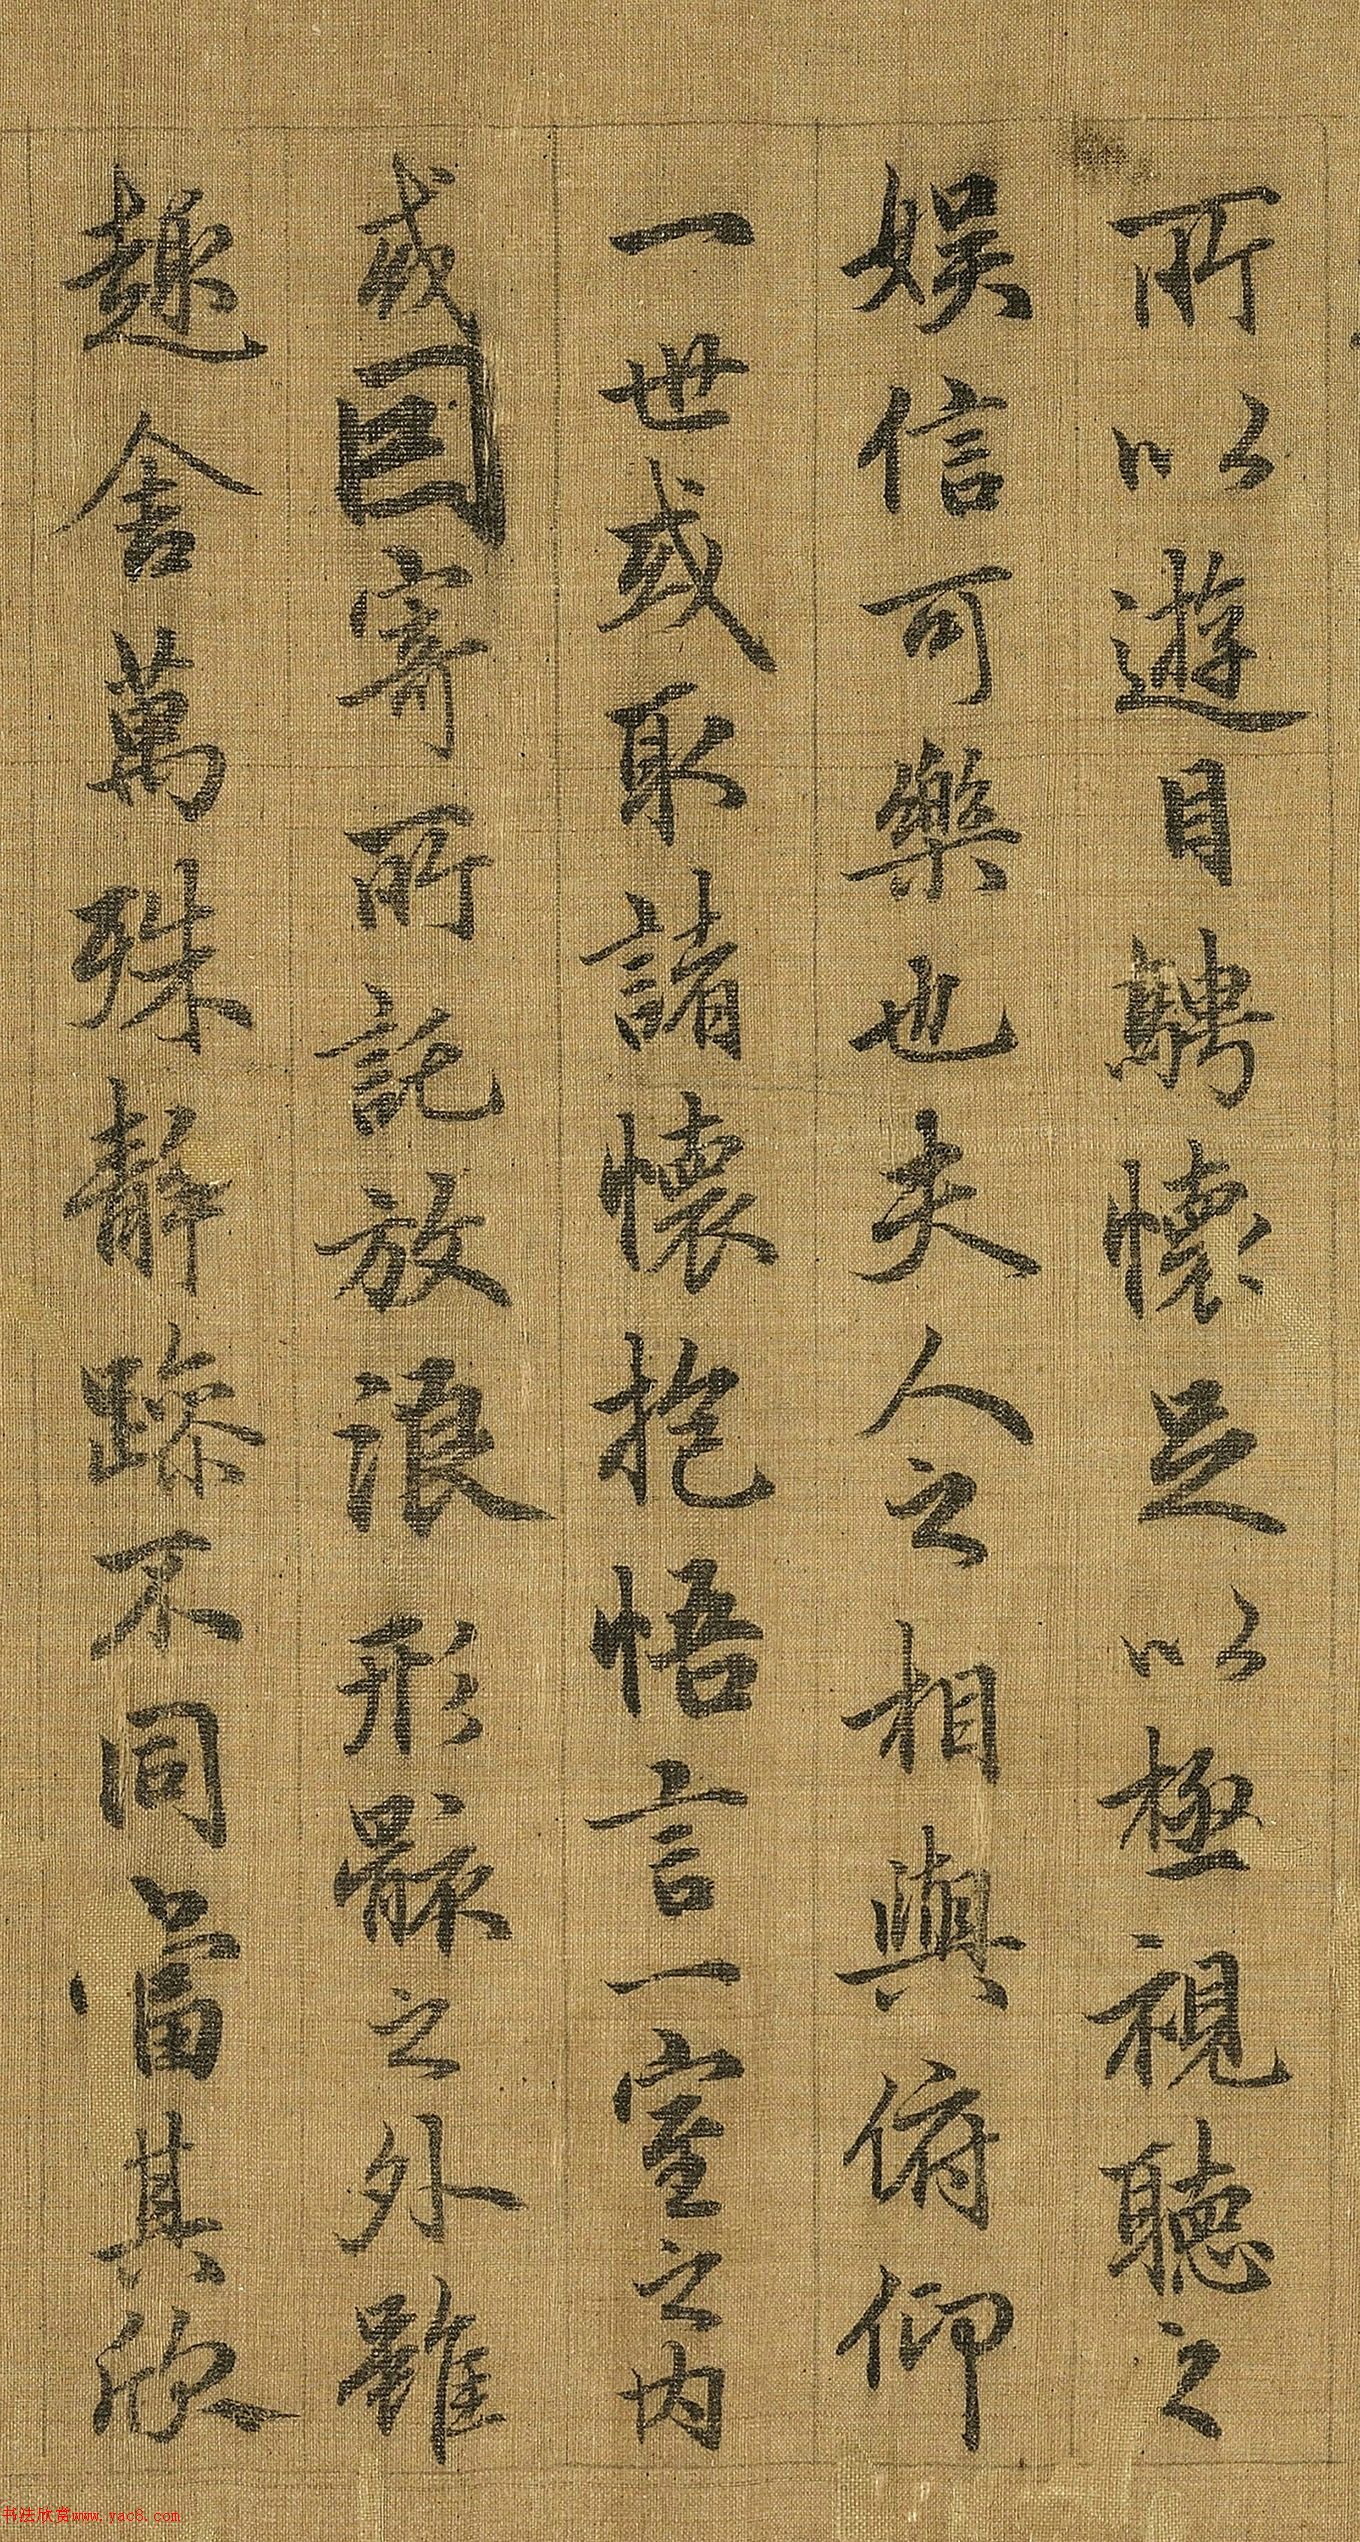 所以遊目騁懷足以極視聽之
娛信可樂也夫人之相與俯仰
一世或取諸懷抱悟言一室之內
或因寄所託放浪形骸之外雖
趣舍萬殊静躁不同當其欣
书法欣赏www.yac8.com